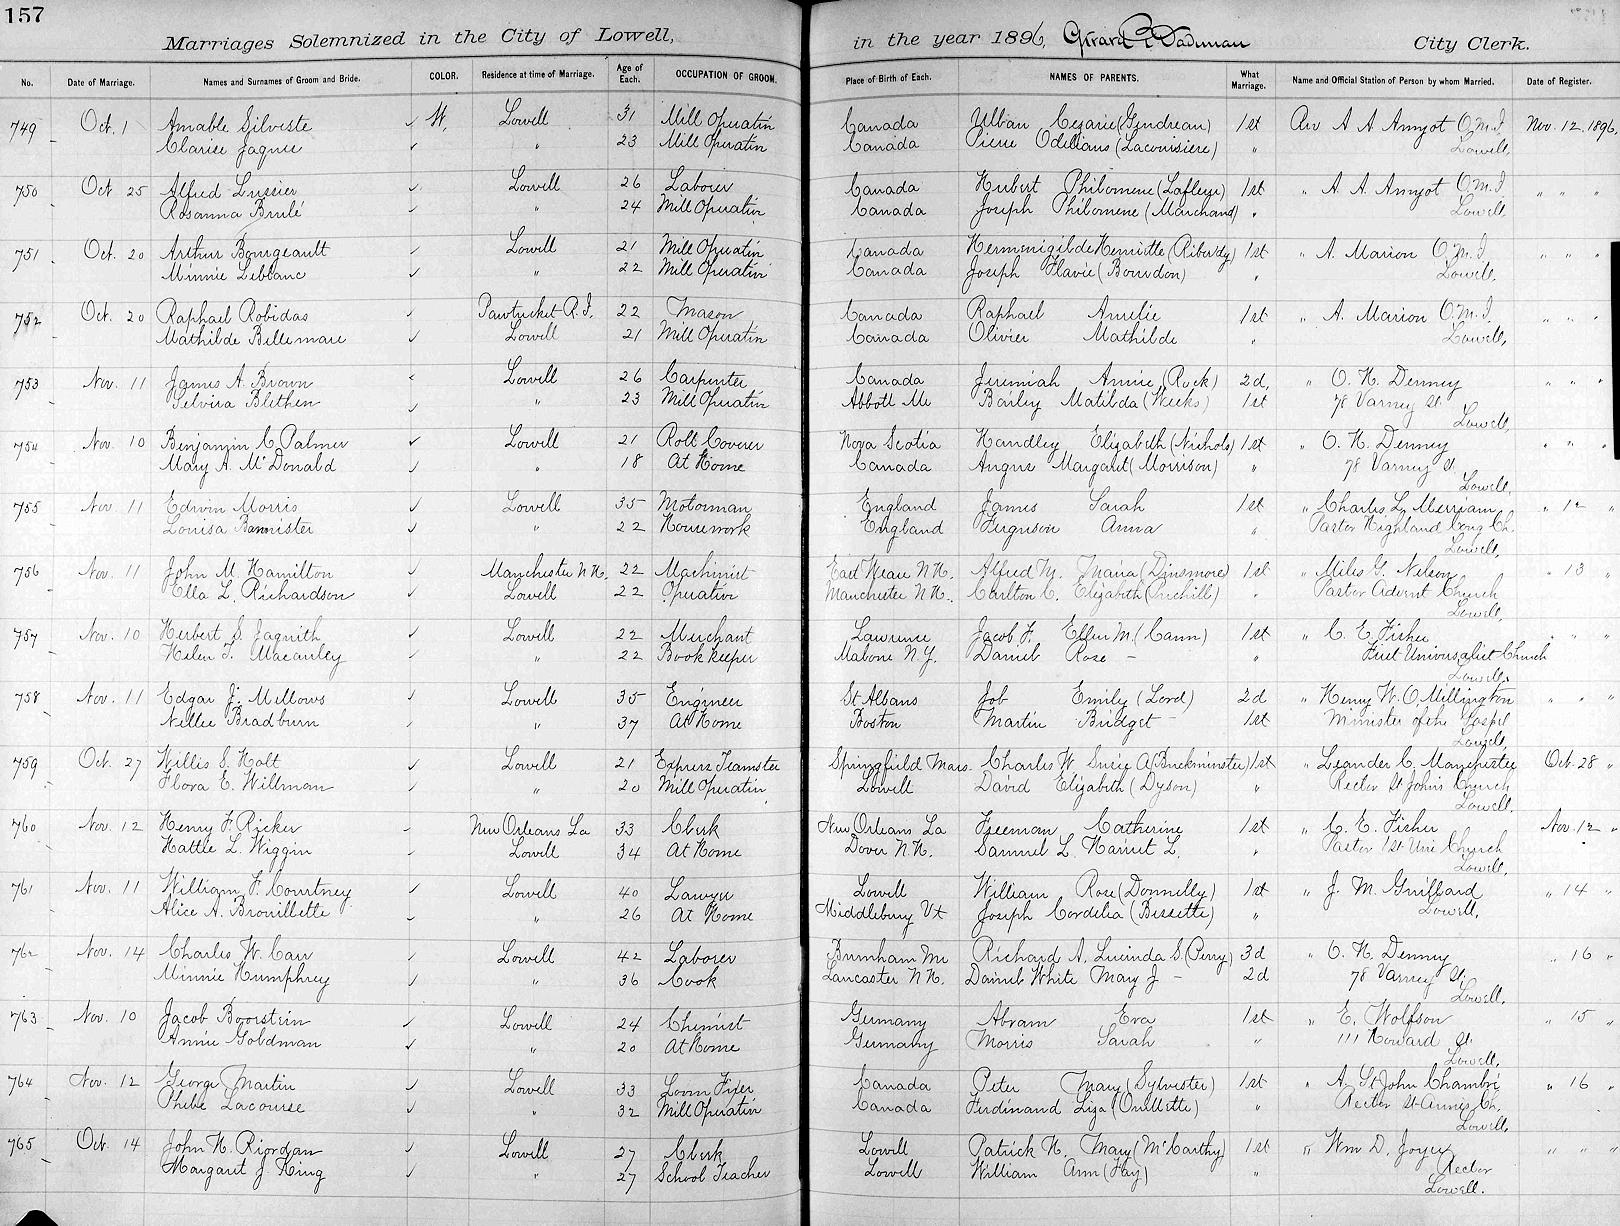 157
Marriages Solemnized in the City of Lowell, in the year 1896, Girard P. Dadman City Clerk.
No. Date of Marriage. Names and Surnames of Groom and Bride. COLOR. Residence at time of Marriage. Age of Each. OCCUPATION OF GROOM. Place of Birth of Each. NAMES OF PARENTS. What Marriage. Name and Official Station of Person by whom Married. Date of Register.
749 Oct. 1 Amable Silveste ✓ W. Lowell 31 Mill Operatin Canada Ulban Cesarie (Gendreau) 1st Rev A A Amyot O.M.I Nov. 12, 1896,
Clarise Jagner ✓ " 23 Mill Operatin Canada Pierre Odillans (Lacoursiere) " Lowell,
750 Oct 25 Alfred Lussier ✓ Lowell 26 Laborer Canada Hubert Philomene (Lafleur) 1st " A. A. Amyot O.M.I " " "
Rosanna Brulé ✓ " 24 Mill Operatin Canada Joseph Philomene (Marchand) " Lowell,
751 Oct. 20 Arthur Bourgeault ✓ Lowell 21 Mill Operatin Canada Hermenigilde Henriette (Riberdy) 1st " A. Marion O.M.I " " "
Minnie Leblanc ✓ " 22 Mill Operatin Canada Joseph Flavie (Bourdon) " Lowell,
752 Oct. 20 Raphael Robidas ✓ Pawtucket R.I. 22 Mason Canada Raphael Amelie 1st " A. Marion O.M.I " " "
Mathilde Bellemare ✓ Lowell 21 Mill Operatin Canada Olivier Mathilde " Lowell,
753 Nov. 11 James A. Brown ✓ Lowell 26 Carpenter Canada Jeremiah Annie (Rock) 2d, " O. H. Denney " " "
Selvira Blethen ✓ " 23 Mill Operatin Abbott Me Bailey Matilda (Weeks) 1st 78 Varney St.
Lowell,
754 Nov. 10 Benjamin C Palmer ✓ Lowell 21 Roll Coverer Nova Scotia Handley Elizabeth (Nichols) 1st " O. H. Denney " " "
Mary A. McDonald ✓ " 18 At Home Canada Angus Margaret (Morrison) " 78 Varney St.
Lowell,
755 Nov. 11 Edwin Morris ✓ Lowell 35 Motorman England James Sarah 1st " Charles L. Merriam " 12 "
Louisa Bannister ✓ " 22 Housework England Ferguson Anna " Pastor Highland Cong Ch.
Lowell,
756 Nov. 11 John M Hamilton ✓ Manchester N.H. 22 Machinist East Weare N.H. Alfred M. Maria (Dinsmore) 1st " Miles G. Nelson " 13 "
Ella L. Richardson ✓ Lowell 22 Operative Manchester N.H. Carlton C. Elizabeth " Pastor Advent Church
Lowell,
757 Nov. 10 Herbert S. Jaquith ✓ Lowell 22 Merchant Lawrence Jacob F. Ellen M. (Cann) 1st " C. E. Fisher " " "
Helen T. Macauley ✓ " 22 Book keeper Malone N.Y. Daniel Rose - " First Universalist Church
Lowell,
758 Nov. 11 Edgar J. Mellows ✓ Lowell 35 Engineer St Albans Job Emily (Lord) 2d " Henry W. O. Millington " " "
Nellie Bradburn ✓ " 37 At Home Boston Martin Bridget - 1st Minister of the Gospel
Lowell,
759 Oct. 27 Willis S. Holt ✓ Lowell 21 Express Teamster Springfield Mass. Charles W Susie A (Buckminster) 1st " Leander C. Manchester Oct. 28 "
Flora E. Willman ✓ " 20 Mill Operatin Lowell David Elizabeth (Dyson) " Rector St Johns Church
Lowell,
760 Nov. 12 Henry F. Ricker ✓ New Orleans La 33 Clerk New Orleans La Freeman Catherine 1st " C. E. Fisher Nov. 12 "
Hattie L. Wiggin ✓ Lowell 34 At Home Dover N.H. Samuel L. Harriet L. " Pastor 1st Uni Church
Lowell,
761 Nov. 11 William F. Courtney ✓ Lowell 40 Lawyer Lowell William Rose (Donnelly) 1st " J. M. Guillard " 14 "
Alice A. Brouillette ✓ " 26 At Home Middlebury Vt Joseph Cordelia (Bessette) " Lowell,
762 Nov. 14 Charles W. Carr ✓ Lowell 42 Laborer Burnham Me Richard A. Lucinda S. (Perry) 3d " O. H. Denney " 16 "
Minnie Humphrey ✓ " 36 Cook Lancaster N.H. Daniel White Mary J - 2d 78 Varney St.
Lowell,
763 Nov. 10 Jacob Boorstein ✓ Lowell 24 Chemist Germany Abram Eva 1st " E. Wolfson " 15 "
Annie Goldman ✓ " 20 At Home Germany Morris Sarah " 111 Howard St.
Lowell,
764 Nov. 12 George Martin ✓ Lowell 33 Loom Fixer Canada Peter Mary (Sylvester) 1st " A. St John Chambré " 16 "
Phebe Lacourse ✓ " 32 Mill Operatin Canada Ferdinand Liza (Ouillette) " Rector St Annes Ch.
Lowell,
765 Oct. 14 John H. Riordan ✓ Lowell 27 Clerk Lowell Patrick H. Mary (McCarthy) 1st " Wm D. Joyce " " "
Margaret J King ✓ " 27 School Teacher Lowell William Ann (Hay) " Rector
Lowell.